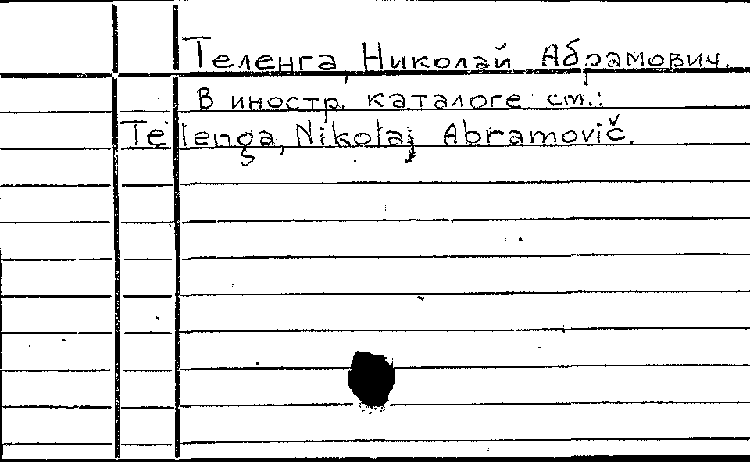 Теленга, Николай Абрамович.
В иностр. каталоге см.:
Telenga, Nikołaj Abramovič.